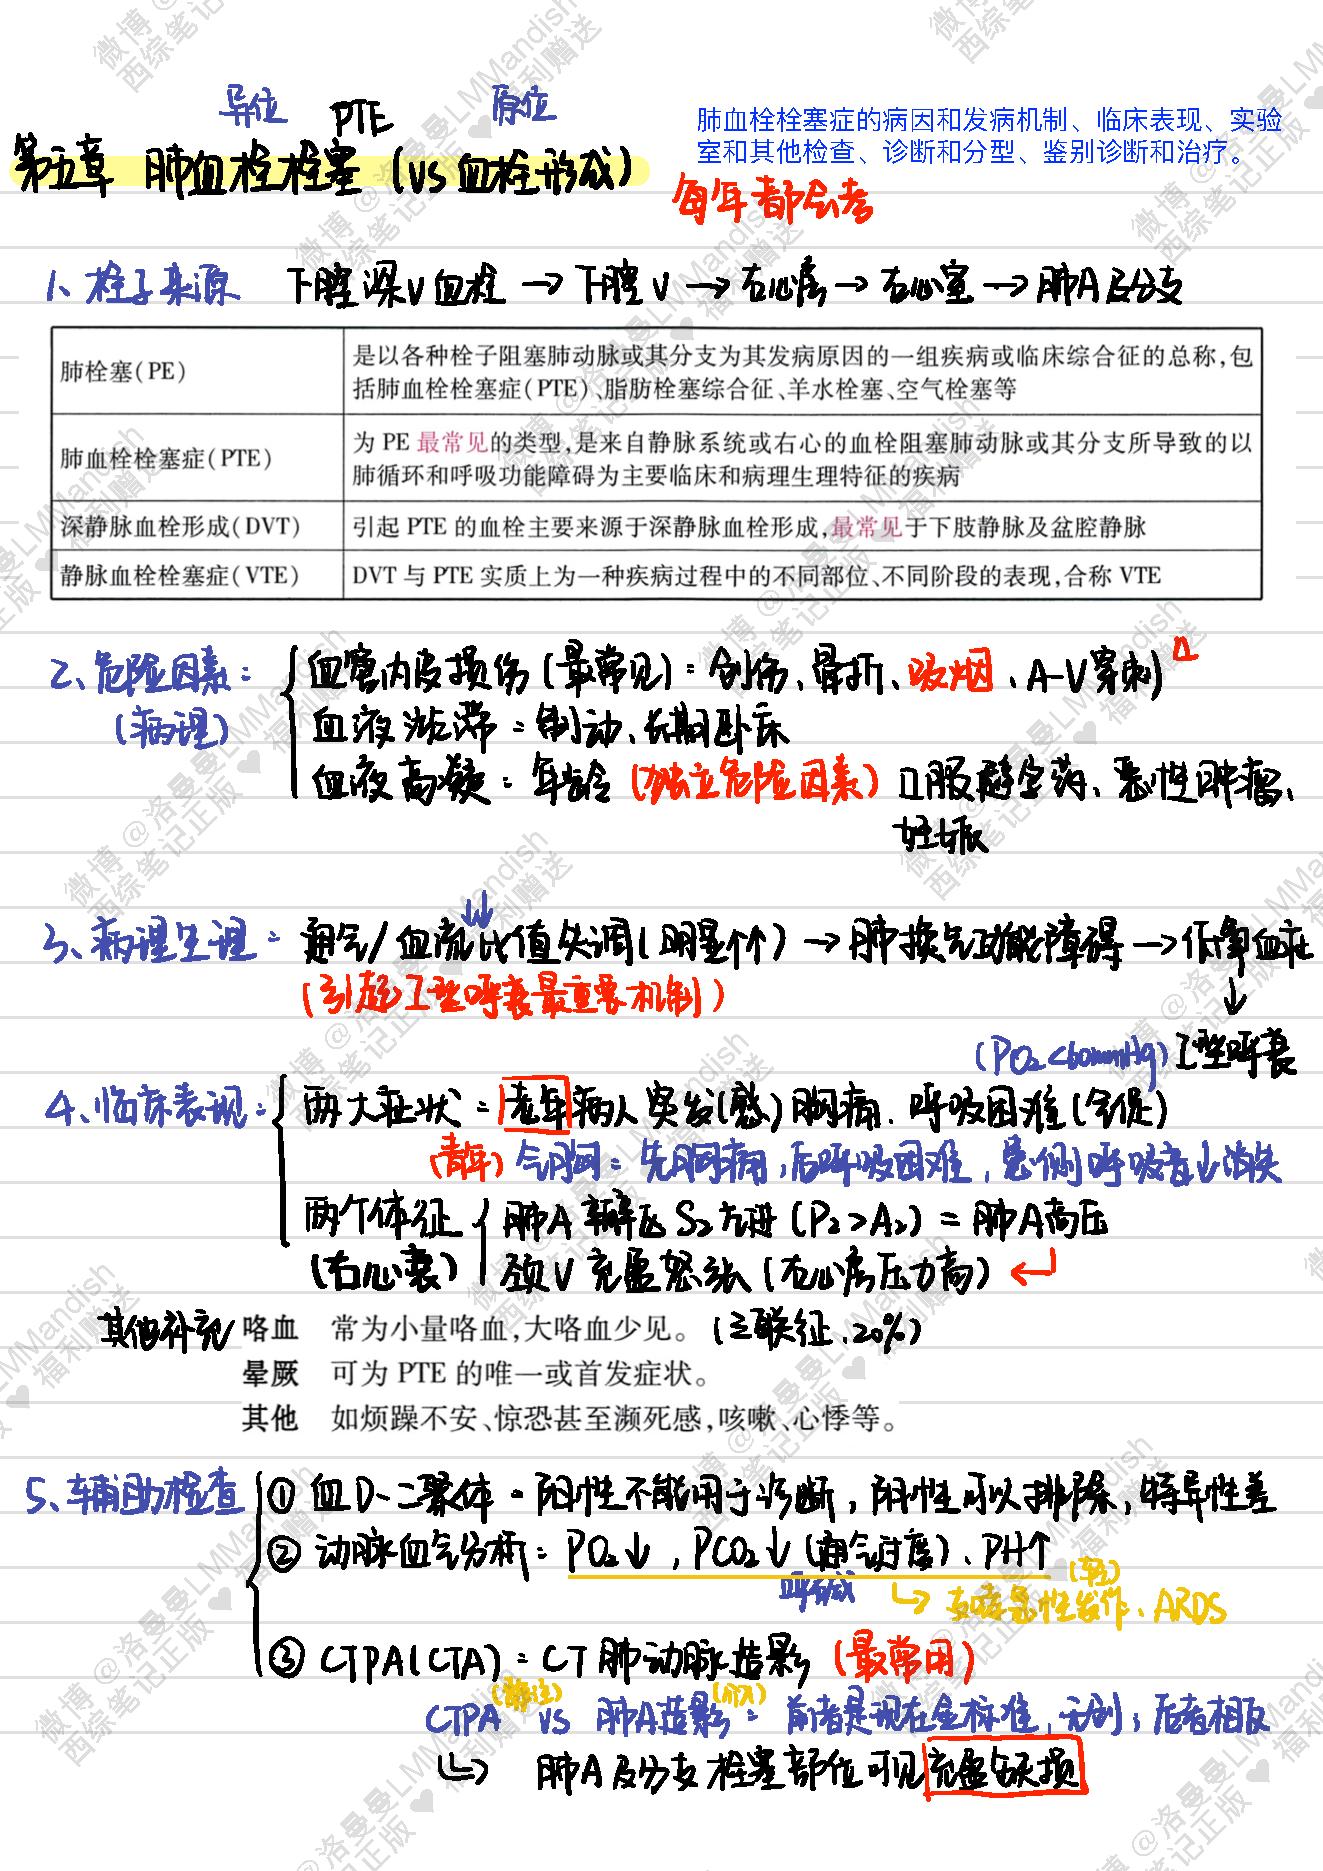 异位 PTE 原位
第五章 肺血栓栓塞 (vs 血栓形成)
肺血栓栓塞症的病因和发病机制、临床表现、实验
室和其他检查、诊断和分型、鉴别诊断和治疗。
每年都会考
1、栓子来源 下腔深V血栓 → 下腔V → 右心房 → 右心室 → 肺A及分支
肺栓塞(PE) 是以各种栓子阻塞肺动脉或其分支为其发病原因的一组疾病或临床综合征的总称,包
括肺血栓栓塞症(PTE)、脂肪栓塞综合征、羊水栓塞、空气栓塞等
肺血栓栓塞症(PTE) 为 PE 最常见的类型,是来自静脉系统或右心的血栓阻塞肺动脉或其分支所导致的以
肺循环和呼吸功能障碍为主要临床和病理生理特征的疾病
深静脉血栓形成(DVT) 引起 PTE 的血栓主要来源于深静脉血栓形成,最常见于下肢静脉及盆腔静脉
静脉血栓栓塞症(VTE) DVT 与 PTE 实质上为一种疾病过程中的不同部位、不同阶段的表现,合称 VTE
2、危险因素: 血管内皮损伤(最常见):创伤、骨折、吸烟、A-V穿刺)
(病理) 血液淤滞:制动、长期卧床
血液高凝:年龄(独立危险因素) 口服避孕药、恶性肿瘤、
妊娠
3、病理生理: 通气/血流↓↓比值失调(明显↑↑) → 肺换气功能障碍 → 低氧血症
(引起I型呼衰最重要机制) ↓
(PO₂<60mmHg) I型呼衰
4、临床表现: 两大症状:老年病人突发(感)胸痛、呼吸困难(气促)
(青年) 气胸:先胸痛,后呼吸困难,患侧呼吸音↓消失
两个体征 肺A瓣区S₂亢进(P₂>A₂)=肺A高压
(右心衰) 颈V充盈怒张(右心房压力高)
其他补充 咯血 常为小量咯血,大咯血少见。(三联征、20%)
晕厥 可为 PTE 的唯一或首发症状。
其他 如烦躁不安、惊恐甚至濒死感,咳嗽、心悸等。
5、辅助检查 ① 血D-二聚体:阳性不能用于诊断,阴性可以排除,特异性差
② 动脉血气分析:PO₂↓,PCO₂↓(通气过度)、PH↑
呼碱 → 支哮急性发作(轻)、ARDS
③ CTPA(CTA):CT肺动脉造影(最常用)
CTPA(静注) vs 肺A造影(介入):前者是现在金标准,无创;后者相反
↳ 肺A及分支栓塞部位可见充盈缺损
微博@洛曼曼LMMandish
西综笔记正版♥福利赠送